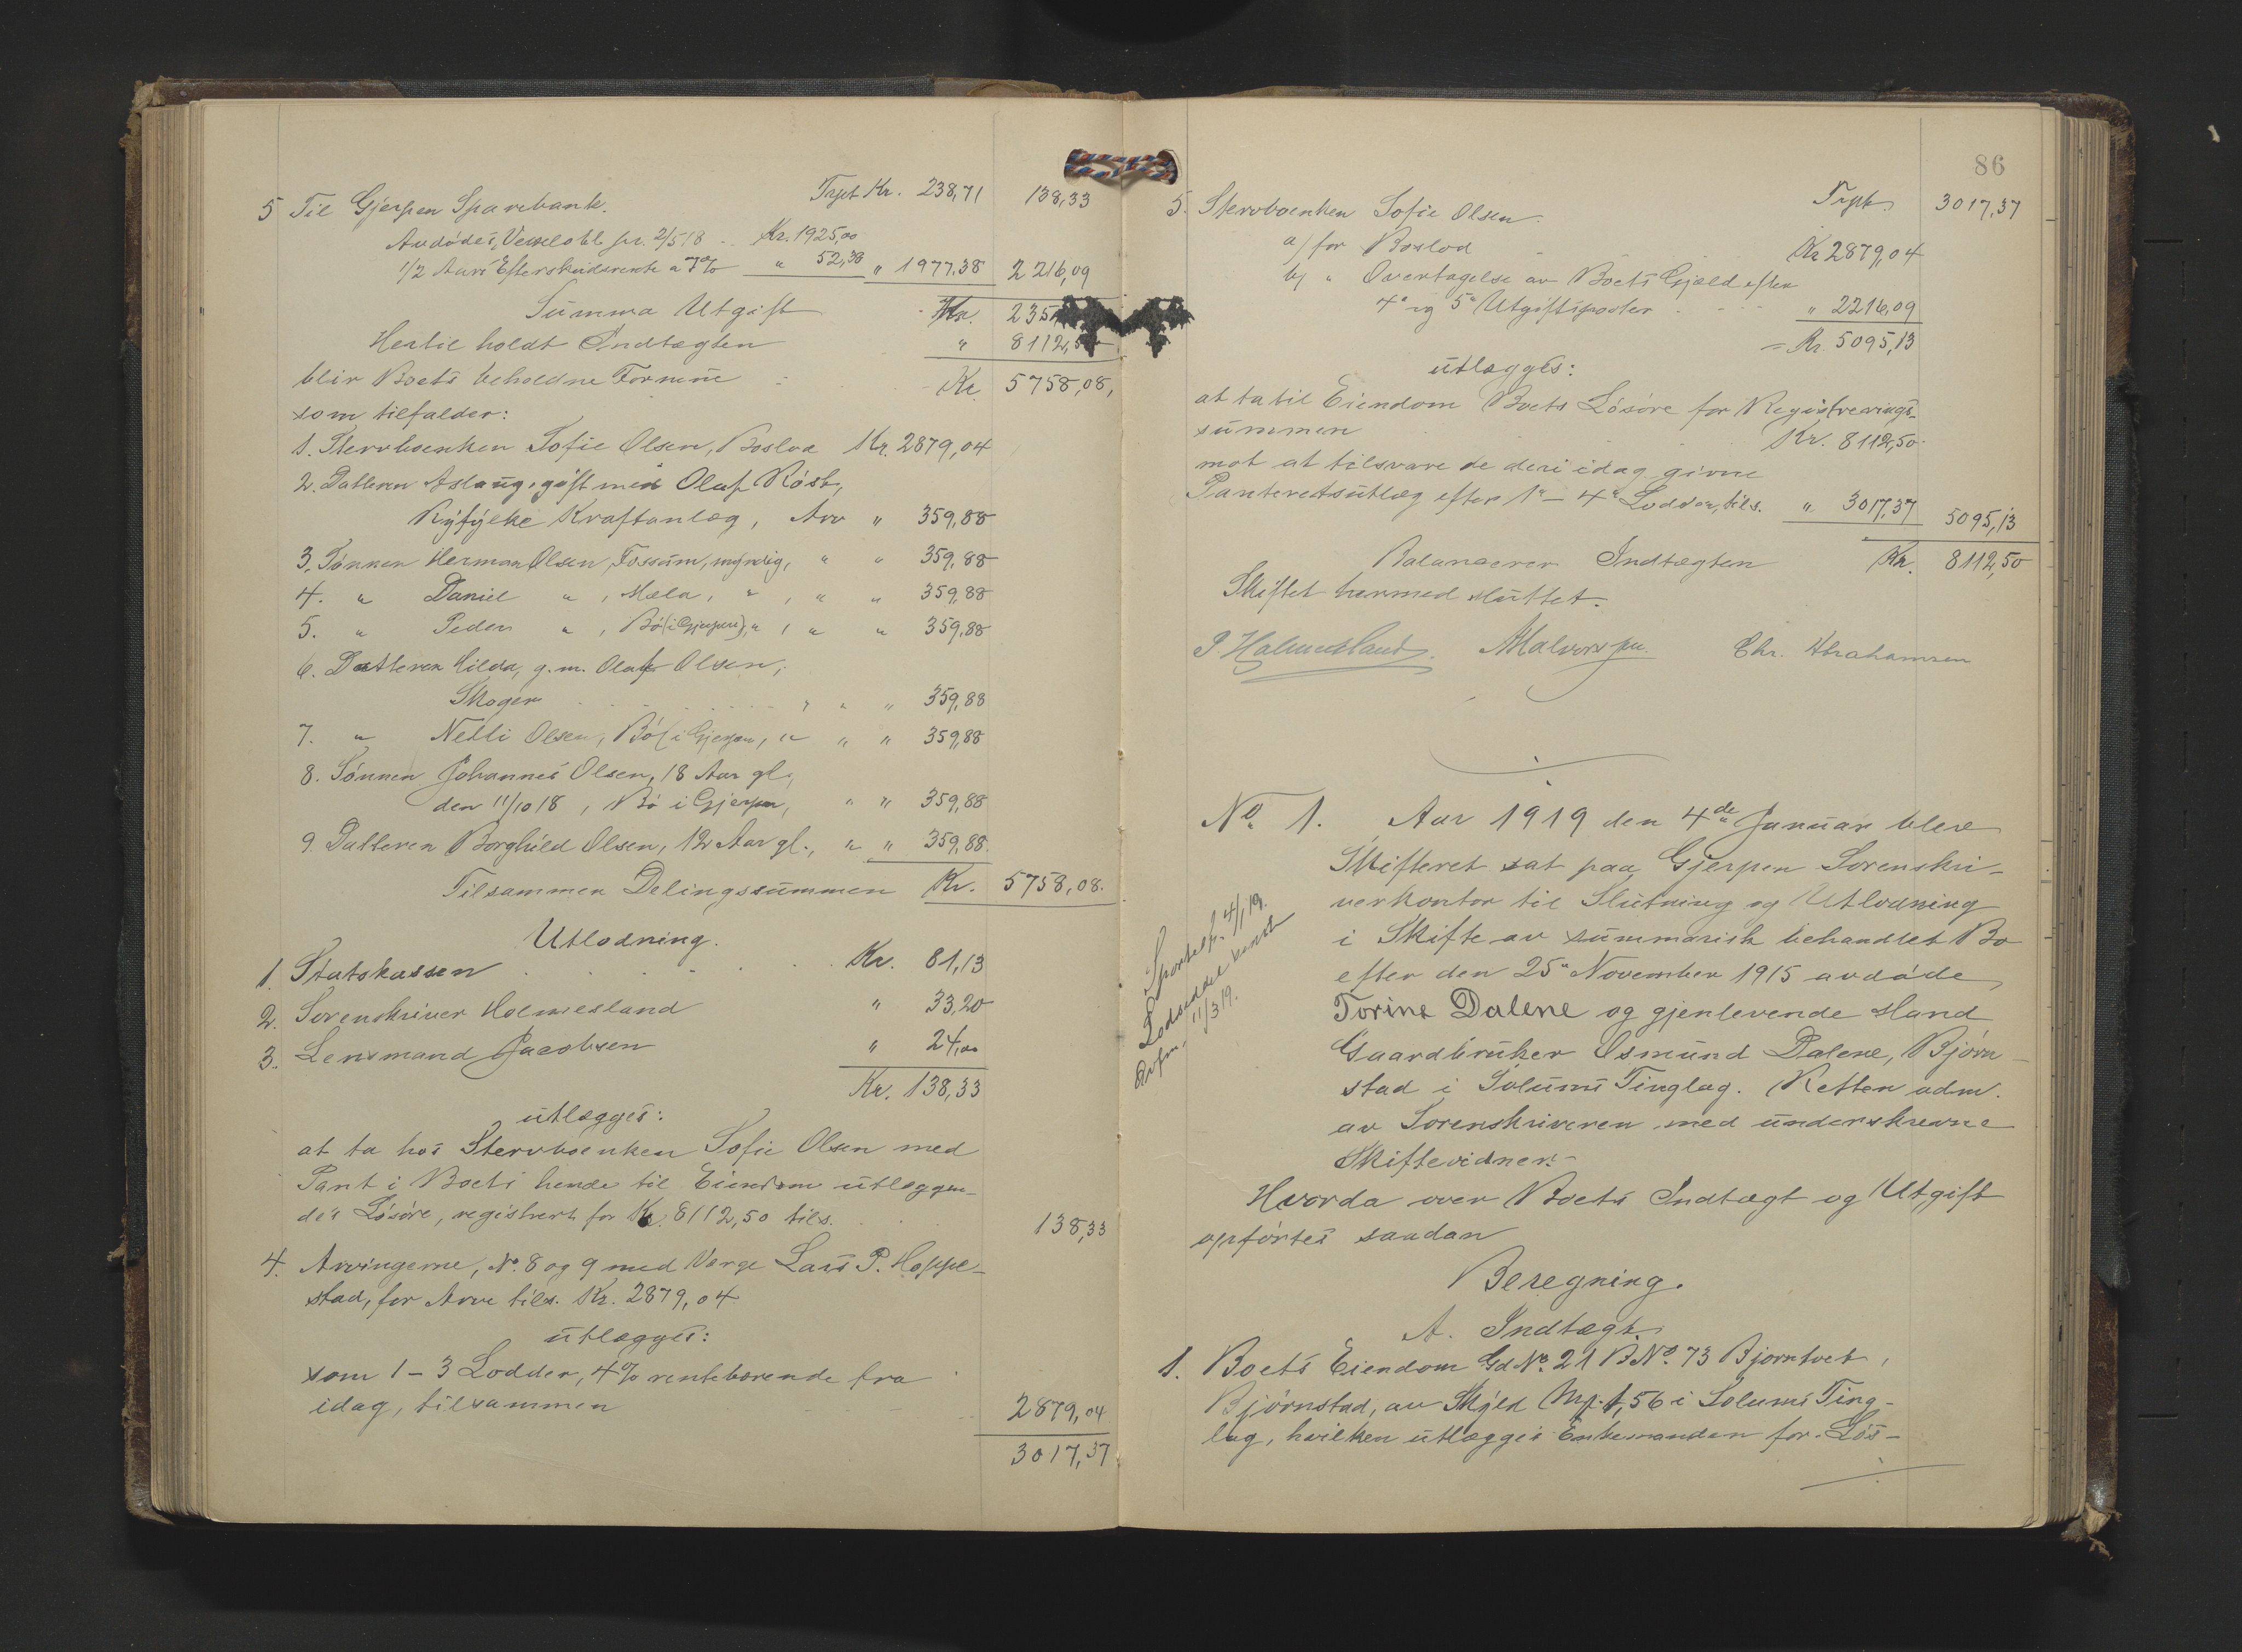 5 Til Gjerpen Sparebank. Trspt Kr. 238,71 138,33
Avdødes Vexelobl. pr. 2/5 18 Kr. 1925,00
1/2 Aars Efterskudsrente a 7% " 52,38 " 1977,38 2216,09
Summa Utgift Kr. 235
Hertil holdt Indtægten " 8112,50
blir Boets beholdne Formue Kr. 5758,08,
som tilfalder:
1. Stervboenken Sofie Olsen, Boslod Kr. 2879,04
2. Datteren Aslaug, gift med Olaf Røst,
Kraftanlæg, Arv " 359,88
3. Sønnen Herman Olsen, Fossum, myndig, " " 359,88
4. " Daniel " , Mæla, " , " " 359,88
5. " Peder " , Bø (i Gjerpen), " , " " 359,88
6. Datteren Hilda, g. m. Olaf Olsen,
Skoger " " " 359,88
7. " Nelli Olsen, Bø (i Gjerpen, " " " 359,88
8. Sønnen Johannes Olsen, 18 Aar gl.
den 11/10 18, Bø i Gjerpen, " " 359,88
9. Datteren Borghild Olsen, 12 Aar gl., " " 359,88.
Tilsammen Delingssummen Kr. 5758,08.
Utlodning.
1. Statskassen Kr. 81,13
2. Sorenskriver Holmesland " 33,20
3. Lensmand Jacobsen " 24,00
Kr. 138,33
utlægges:
at ta hos Stervboenken Sofie Olsen med
Pant i Boets hende til Eiendom utlæggen-
de Løsøre, registrert for Kr. 8112,50 tils. 138,33
4. Arvingerne, No. 8 og 9 med Verge Lars P. Hoppe-
stad, for Arv tils. Kr. 2879,04
utlægges:
som 1 - 3 Lodder, 4% rentebærende fra
idag, tilsammen 2879,04
3017,37
86
5. Stervboenken Sofie Olsen Trspt. 3017,37
a/ for Boslod Kr 2879,04
b/ " Overtagelse av Boets Gjæld efter
4de og 5te Utgiftsposter " 2216,09
= Kr. 5095,13
utlægges:
at ta til Eiendom Boets Løsøre for Registrerings-
summen Kr. 8112,50
mot at tilsvare de deri idag givne
Panteretsutlæg efter 1ste - 4de Lodder, tils. " 3017,37 5095,13
Balancerer Indtægten Kr. 8112,50
Skiftet hermed sluttet.
P. Holmesland. Chr. Abrahamsen
No. 1. Aar 1919 den 4de Januar blev
Skifteret sat paa Gjerpen Sorenskri-
verkontor til Slutning og Utlodning
i Skifte av summarisk behandlet Bo
efter den 25de November 1915 avdøde
Torine Dalene og gjenlevende Mand
Gaardbruker Osmund Dalene, Bjørn-
stad i Solums Tinglag. Retten adm.
av Sorenskriveren med underskrevne
Skiftevidner:-
Sportelfr. 4/1 19.
Lodseddel sendt
11/3 19.
Hvorda over Boets Indtægt og Utgift
opførtes saadan
Beregning.
A. Indtægt.
1. Boets Eiendom Gd No. 21 B No. 73 Bjorntvet,
Bjørnstad, av Skyld Mrk. 1,56 i Solums Ting-
lag, hvilken utlægges Enkemanden for Løs-